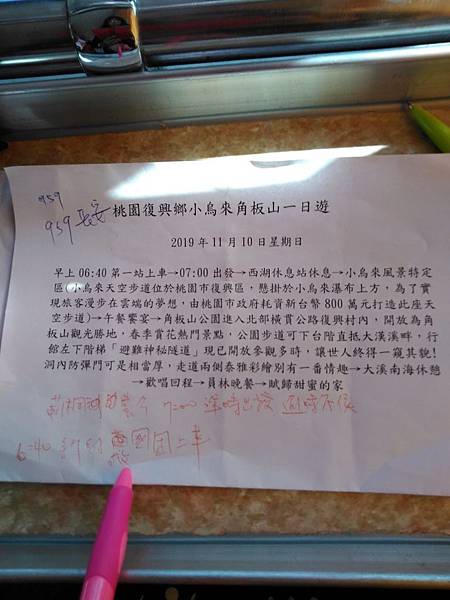 959
959 長安
桃園復興鄉小烏來角板山一日遊
2019 年 11 月 10 日星期日
早上 06:40 第一站上車→07:00 出發→西湖休息站休息→小烏來風景特定
區(小烏來天空步道位於桃園市復興區，懸掛於小烏來瀑布上方，為了實
現旅客漫步在雲端的夢想，由桃園市政府耗資新台幣 800 萬元打造此座天
空步道)→午餐饗宴→角板山公園進入北部橫貫公路復興村內，開放為角
板山觀光勝地，春季賞花熱門景點，公園步道可下台階直抵大漢溪畔，行
館左下階梯「避難神秘隧道」現已開放參觀多時，讓世人終得一窺其貌!
洞內防彈門可是相當厚，走道兩側泰雅彩繪別有一番情趣→大溪南海休憩
→歡唱回程→員林晚餐→賦歸甜蜜的家
7:00 準時出發 過時不候
6:40 上車